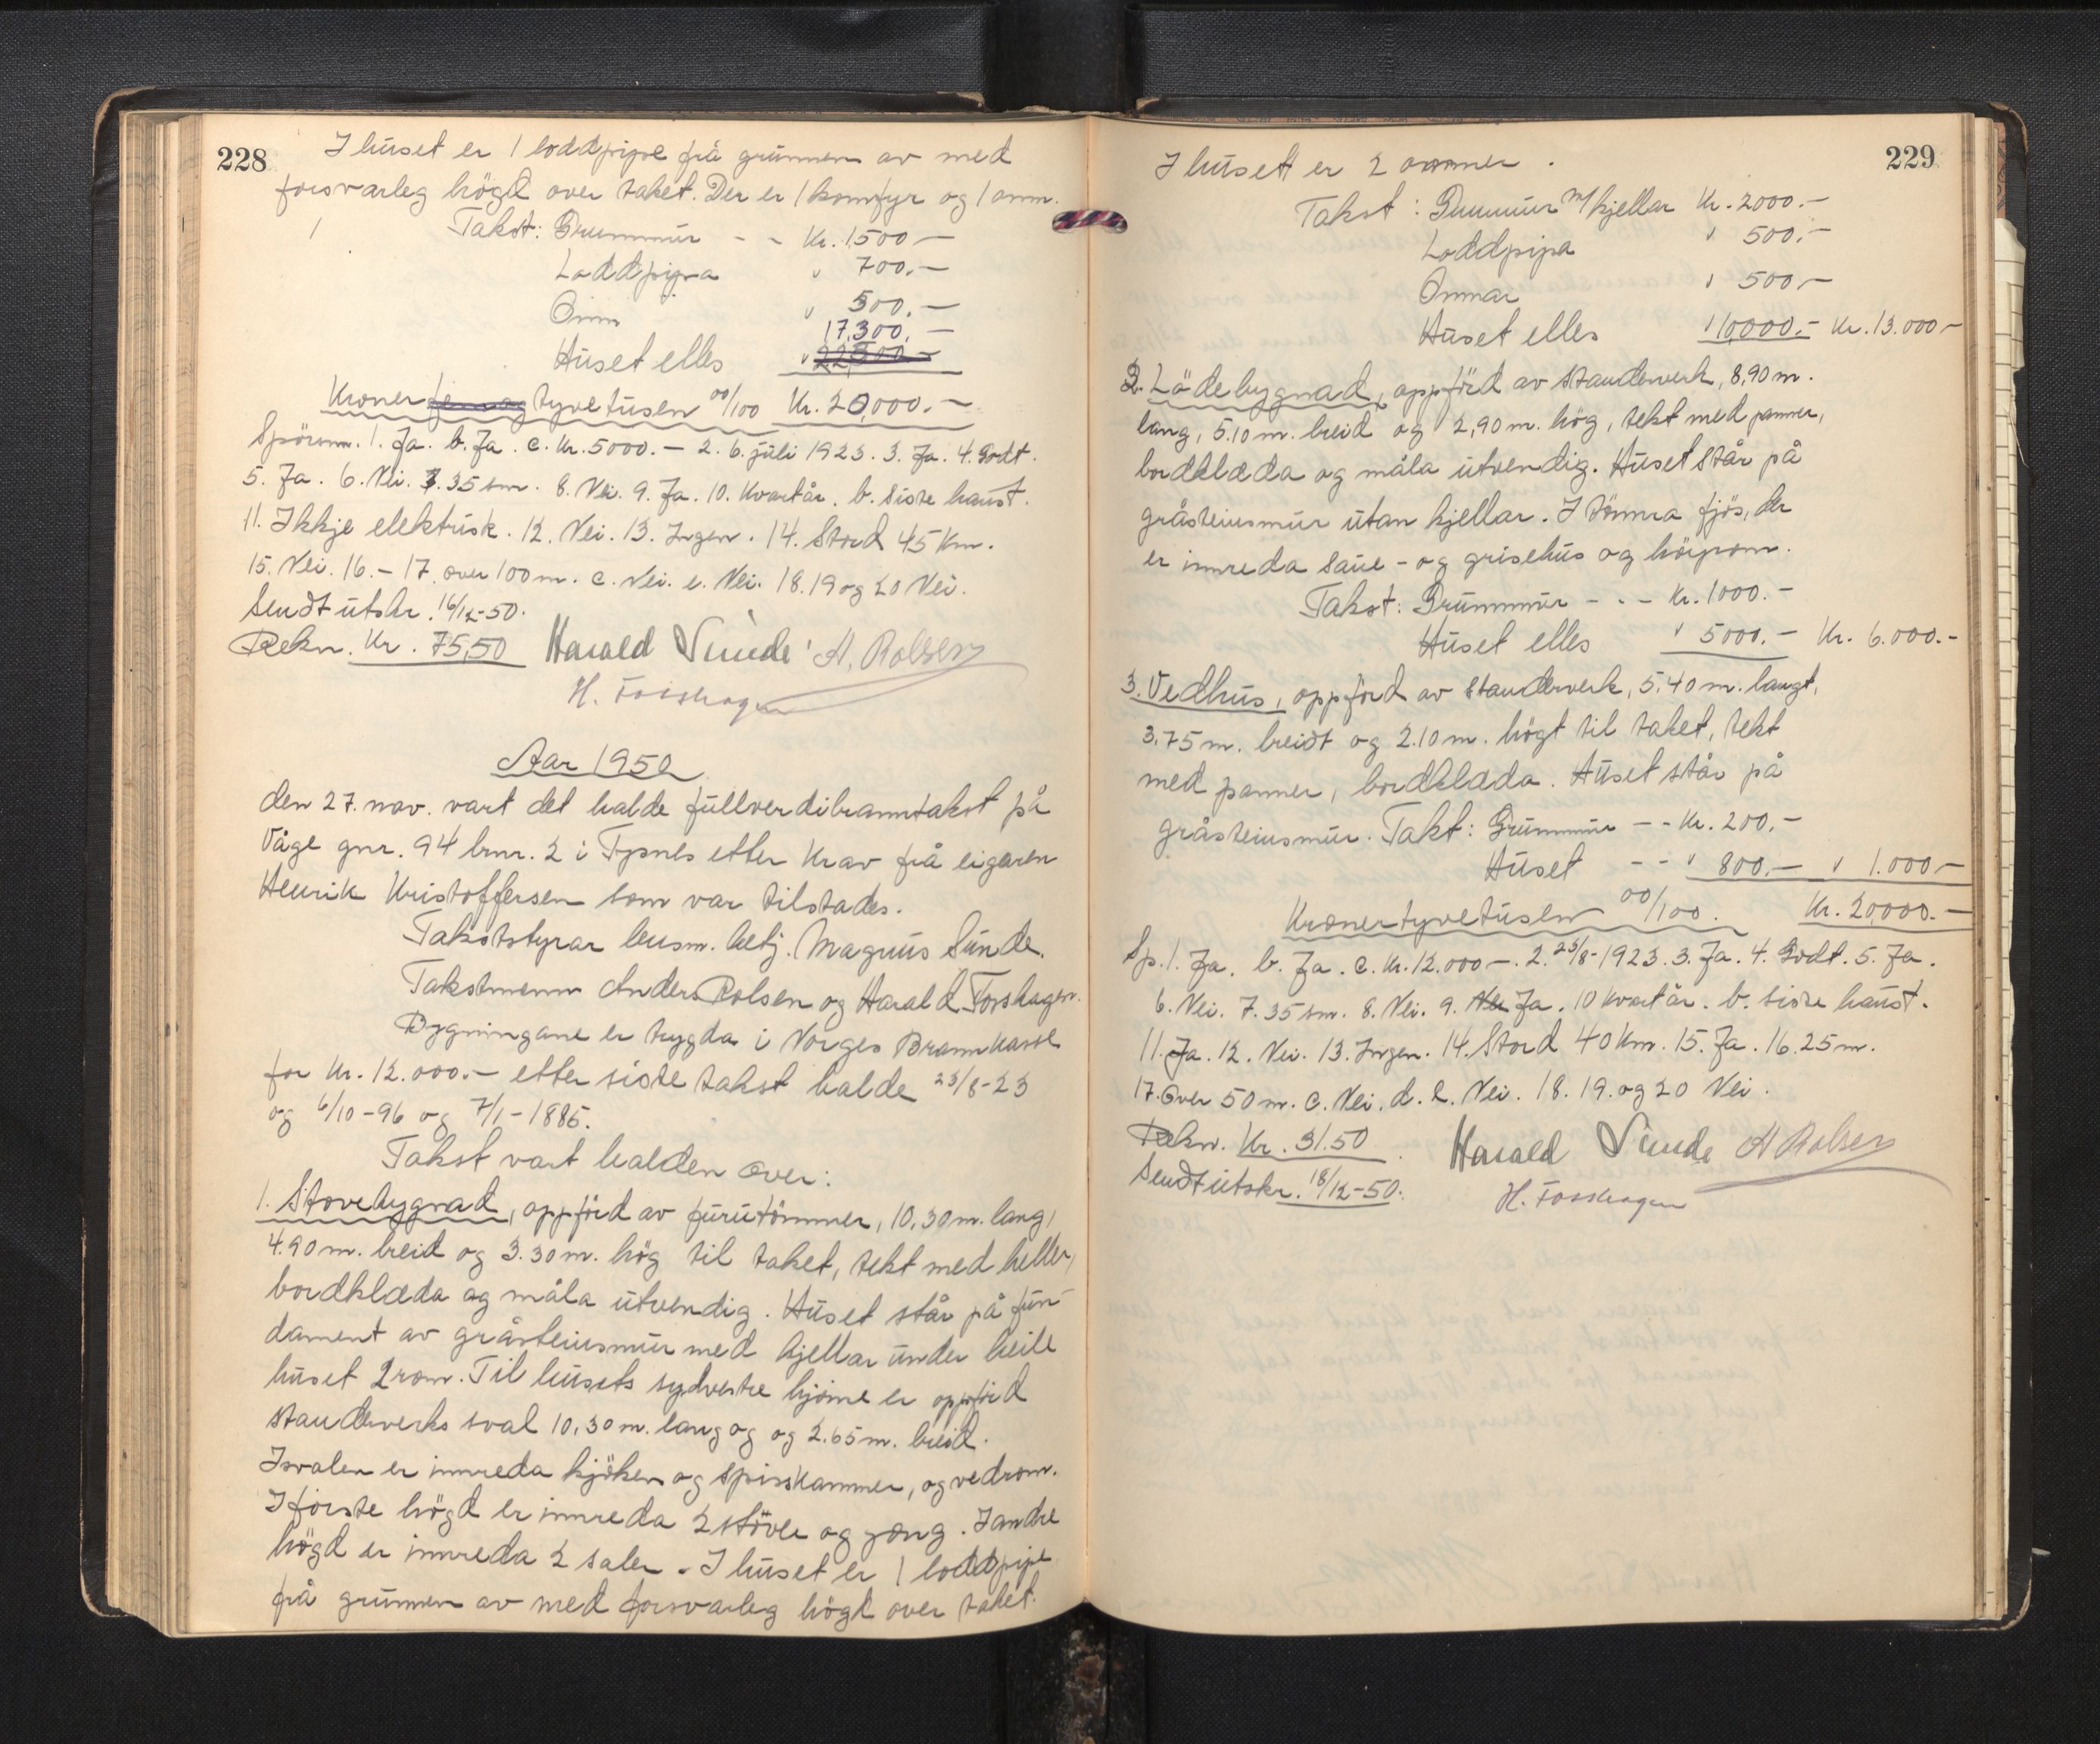 228
I huset er 1 loddpipe frå grunnen av med
forsvarleg högd over taket. Der er 1 komfyr og 1 omn.
Takst: Grunnmur - - Kr. 1500 —
Loddpipa " 700.—
Omn " 500.—
17.300.—
Huset elles " 22.300 —
Kroner fem og tyvetusen 00/100 Kr. 20,000.—
Spörsm. 1. Ja. b. Ja. c. Kr. 5000.— 2. 6. juli 1923. 3. Ja. 4. Godt.
5. Ja. 6. Nei. 7. 35 sm. 8. Nei. 9. Ja. 10. Kvartår. b. Siste haust.
11. Ikkje elektrisk. 12. Nei. 13. Ingen. 14. Stord 45 Km.
15. Nei. 16. – 17. over 100 m. c. Nei. e. Nei. 18. 19 og 20 Nei.
Sendt utskr. 16/12-50.
Rekn. Kr. 75,50 Harald Sunde A. Rolsen
H. Fosshagen
Aar 1950
den 27. nov. vart det halde fullverdibranntakst på
Våge gnr. 94 brnr. 2 i Tysnes etter Krav frå eigaren
Henrik Kristoffersen som var tilstades.
Takststyrar lensm. betj. Magnus Sunde.
Takstmenn Anders Rolsen og Harald Fosshagen.
Bygningane er trygda i Norges Brannkasse
for Kr. 12.000.— etter siste takst halde 23/8-23
og 6/10-96 og 7/1-1885.
Takst vart halden over:
1. Stovebygnad, oppförd av furutömmer, 10,30 m. lang,
4.90 m. breid og 3.30 m. hög til taket, tekt med heller,
bordklæda og måla utvendig. Huset står på fun-
dament av gråsteinsmur med kjellar under heile
huset 2 rom. Til husets sydvestre hjörne er oppförd
standerverks sval 10,30 m. lang og og 2.65 m. breid.
I svalen er innreda kjöken og spisskammer, og vedrom.
I förste högd er innreda 2 stöver og gong. I andre
högd er innreda 2 saler. I huset er 1 loddpipe
frå grunnen av med forsvarleg högd over taket.
229
I huset er 2 omner.
Takst: Grunnmur m/kjellar Kr. 2000.—
Loddpipa " 500.—
Omnar " 500.—
Huset elles " 10000.— Kr. 13.000—
2. Lödebygnad, oppförd av standerverk, 8,90 m.
lang, 5.10 m. breid og 2,90 m. hög, tekt med panner,
bordklæda og måla utvendig. Huset står på
gråsteinsmur utan kjellar. I tömra fjös, der
er innreda saue- og grisehus og höyrom.
Takst: Grunnmur - - - Kr. 1000.—
Huset elles " 5000.— Kr. 6.000.—
3. Vedhus, oppförd av standerverk, 5.40 m. langt,
3.75 m. breidt og 2.10 m. högt til taket, tekt
med panner, bordklæda. Huset står på
gråsteinsmur. Takt: Grunnmur - - Kr. 200.—
Huset - - " 800.— " 1.000—
Kroner tyvetusen 00/100. Kr. 20,000.—
Sp. 1. Ja. b. Ja. c. Kr. 12.000—. 2. 23/8-1923. 3. Ja. 4. Godt. 5. Ja.
6. Nei. 7. 35 sm. 8. Nei. 9. Nei Ja. 10 Kvartår. b. siste haust.
11. Ja. 12. Nei. 13. Ingen. 14. Stord 40 Km. 15. Ja. 16. 25 m.
17. Over 50 m. c. Nei. d. e. Nei. 18. 19. og 20 Nei.
Rekn. Kr. 31.50 Harald Sunde A Rolsen
Sendt utskr. 18/12-50. H. Fosshagen